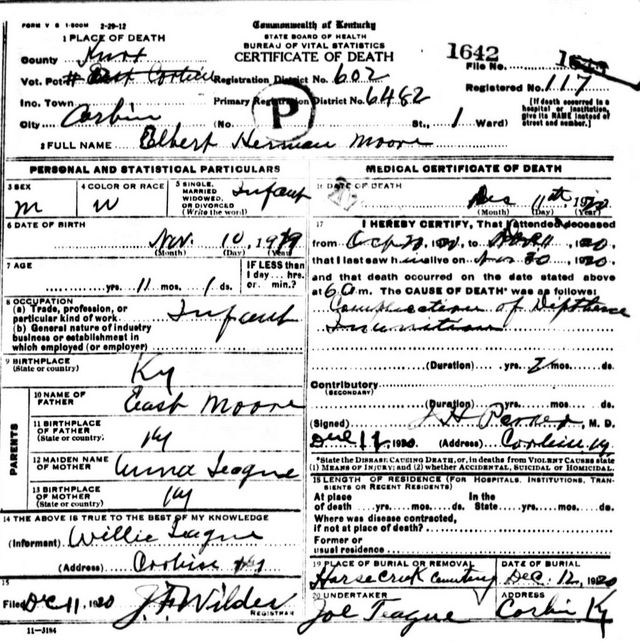 FORM V S 1-500M 2-29-12
1 PLACE OF DEATH
County Knox
Vot. Pct. # East Corbin
Inc. Town
City Corbin
Commonwealth of Kentucky
STATE BOARD OF HEALTH
BUREAU OF VITAL STATISTICS
CERTIFICATE OF DEATH
Registration District No. 602
Primary Registration District No. 6482
(No. St., 1 Ward)
P
1642
File No.
Registered No. 117
[If death occurred in a
hospital or institution,
give its NAME instead of
street and number.]
2 FULL NAME Elbert Herman Moore
PERSONAL AND STATISTICAL PARTICULARS
3 SEX
M
4 COLOR OR RACE
W
5 SINGLE,
MARRIED
WIDOWED,
OR DIVORCED
(Write the word)
Infant
6 DATE OF BIRTH
Nov. 10, 1919
(Month) (Day) (Year)
7 AGE
yrs. 11 mos. 1 ds.
IF LESS than
1 day... hrs.
or min.?
8 OCCUPATION
(a) Trade, profession, or
particular kind of work
(b) General nature of industry
business or establishment in
which employed (or employer)
Infant
9 BIRTHPLACE
(State or country)
Ky
PARENTS
10 NAME OF
FATHER
East Moore
11 BIRTHPLACE
OF FATHER
(State or country)
Ky
12 MAIDEN NAME
OF MOTHER
Anna Teague
13 BIRTHPLACE
OF MOTHER
(State or country)
Ky
14 THE ABOVE IS TRUE TO THE BEST OF MY KNOWLEDGE
(Informant) Willie Teague
(Address) Corbin Ky
15
Filed Dec 11, 1920 J. F. Wilder
REGISTRAR
11-3184
MEDICAL CERTIFICATE OF DEATH
16 DATE OF DEATH
Dec 11th 1920
(Month) (Day) (Year)
17 I HEREBY CERTIFY, That I attended deceased
from Oct 20, 1920, to , 1920,
that I last saw him alive on Nov 30, 1920,
and that death occurred on the date stated above
at 6 0 m. The CAUSE OF DEATH* was as follows:
Complication of
(Duration) yrs. 2 mos. ds.
Contributory
(SECONDARY)
(Duration) yrs. mos. ds.
(Signed) J H Parker, M. D.
Dec 11, 1920 (Address) Corbin, Ky.
*State the DISEASE CAUSING DEATH, or, in deaths from VIOLENT CAUSES state
(1) MEANS OF INJURY; and (2) whether ACCIDENTAL, SUICIDAL or HOMICIDAL.
18 LENGTH OF RESIDENCE (FOR HOSPITALS, INSTITUTIONS, TRAN-
SIENTS OR RECENT RESIDENTS)
At place
of death yrs. mos. ds.
In the
State yrs. mos. ds.
Where was disease contracted,
if not at place of death?
Former or
usual residence
19 PLACE OF BURIAL OR REMOVAL
Horse Creek Cemetery
DATE OF BURIAL
Dec. 12, 1920
20 UNDERTAKER
Joe Teague
ADDRESS
Corbin Ky